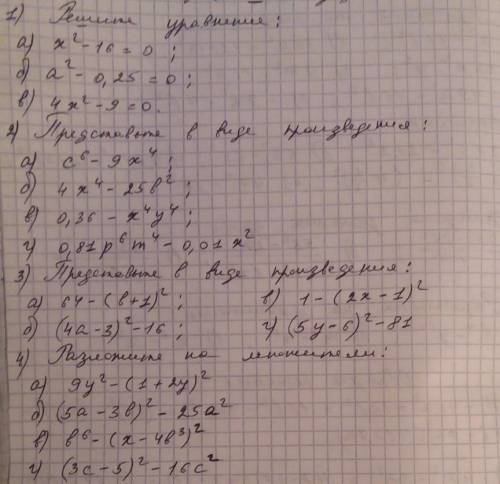 1) Решите уравнение:
а) x² - 16 = 0;
б) a² - 0,25 = 0;
в) 4x² - 9 = 0.
2) Представьте в виде произведения:
а) c⁶ - 9x⁴;
б) 4x⁴ - 25b²;
в) 0,36 - x⁴y⁴;
г) 0,81p⁶m⁴ - 0,01x²
3) Представьте в виде произведения:
а) 64 - (b+1)²; в) 1 - (2x - 1)²
б) (4a - 3)² - 16; г) (5y - 6)² - 81
4) Разложите на множители:
а) 9y² - (1 + 2y)²
б) (5a - 3b)² - 25a²
в) b⁶ - (x - 4b³)²
г) (3c - 5)² - 16c²